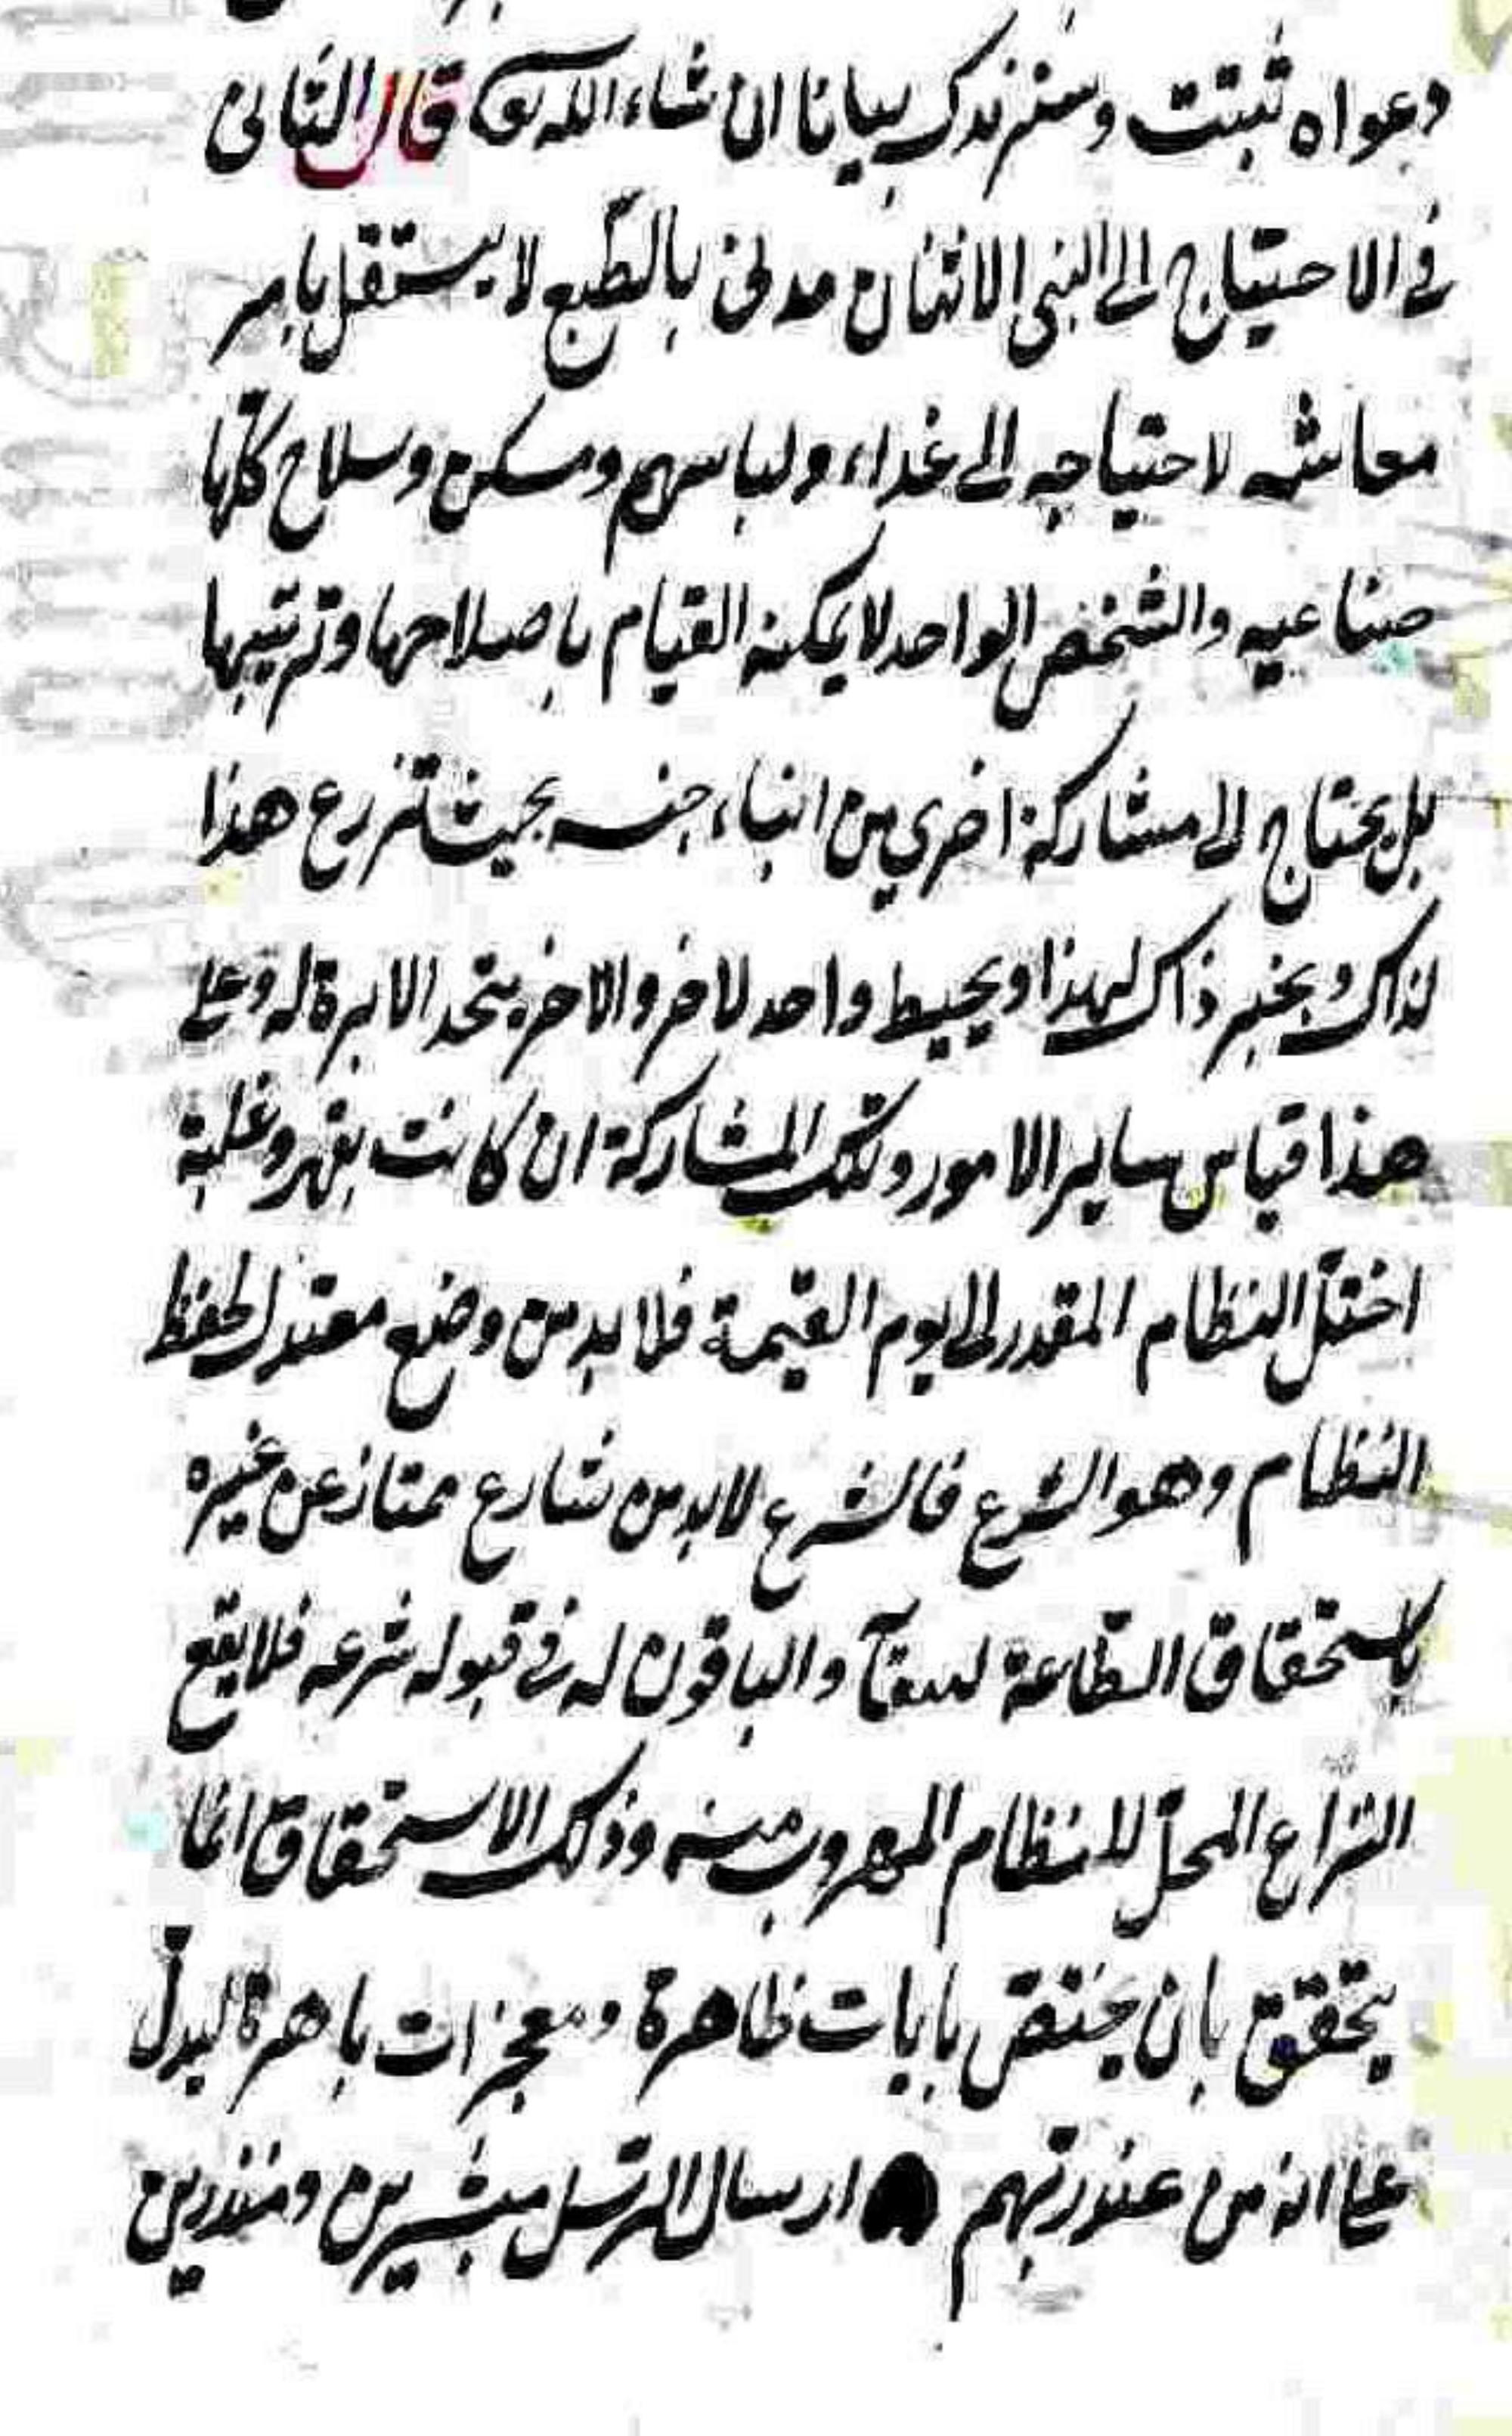 دعواه ثبتت وسنزيدك بيانا ان شاء الله تعا قال الثانى
فى الاحتياج الى النبى الانسان مدنى بالطبع لا يستقل بامر
معاشه لاحتياجه الى غذاء ولباس ومسكن وسلاح كلها
صناعيه والشخص الواحد لا يمكنه القيام باصلاحها وترتيبها
بل يحتاج الى مشاركة اخرى من ابناء جنسه بحيث يزرع هذا
لذاك ويخبز ذاك لهذا ويخيط واحد لاخر والاخر يتخذ الابرة له وعلى
هذا قياس ساير الامور وتلك المشاركة ان كانت بقهر وغلبة
اختل النظام المقدر الى يوم القيمة فلا بد من وضع معتدل لحفظ
النظام وهو الشرع فالشرع لابد من شارع ممتاز عن غيره
باستحقاق الطاعة والباقون له فى قبوله شرعه فلا يقع
النزاع المخل للانتظام المهروب منه وذلك الاستحقاق انما
يتحقق بان يختص بايات ظاهرة ومعجزات باهرة ليدل
على انه من عند ربهم ارسال الرسل مبشرين ومنذرين